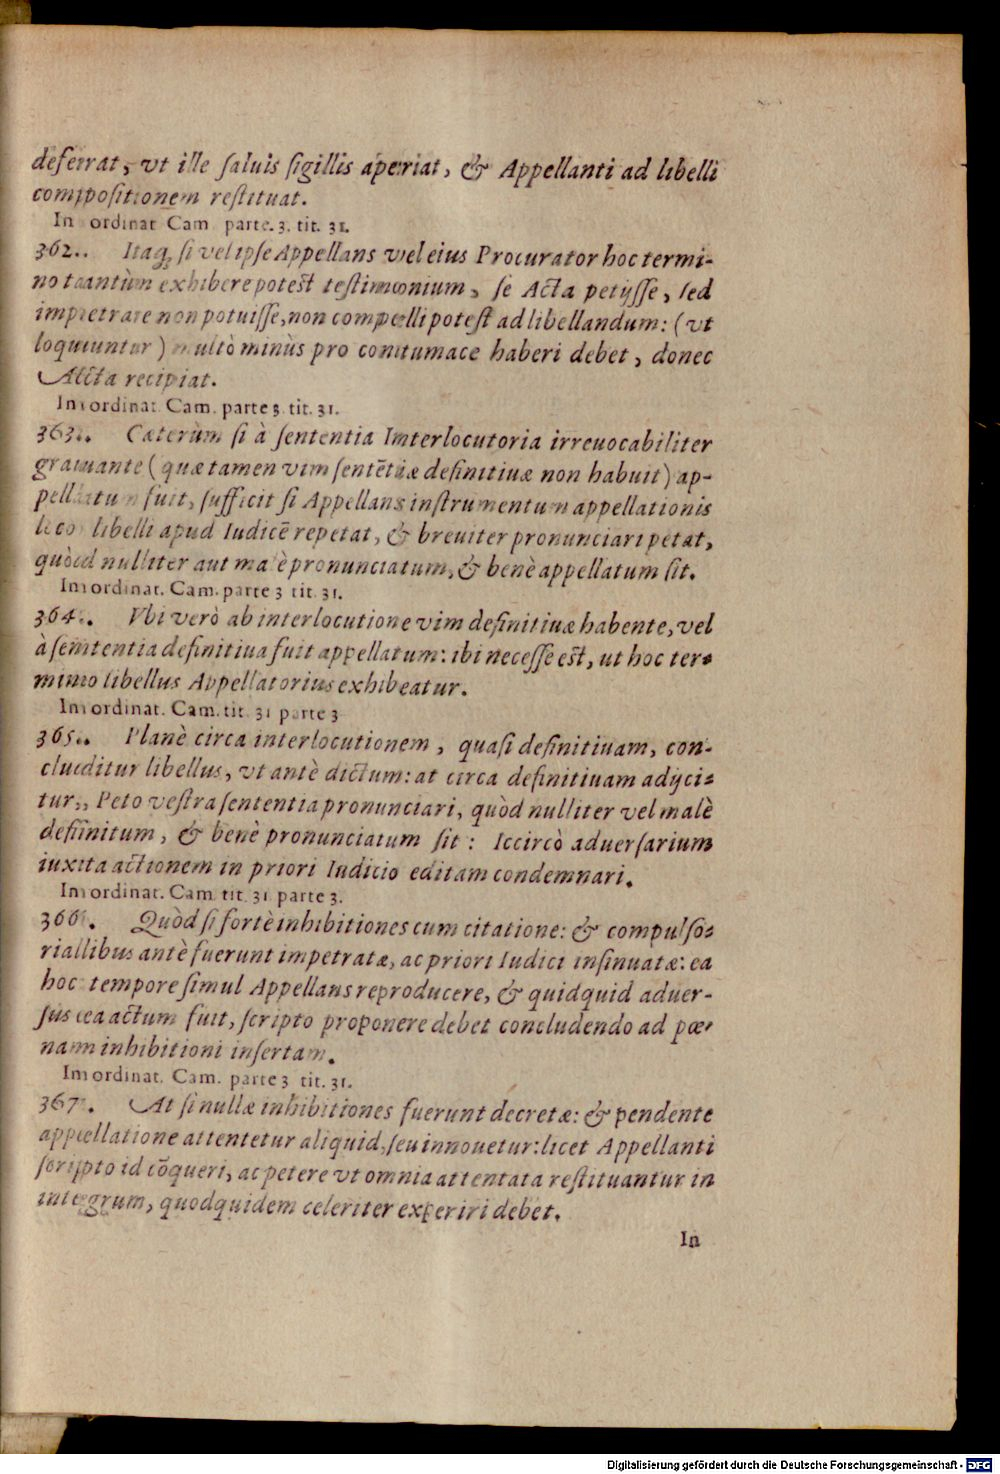 deferrat, vt ille ſaluis ſigillis aperiat, & Appellanti ad libelli
compoſitionem reſtituat.
In ordinat Cam parte. 3. tit. 31.
362. Itaq; ſi vel ipſe Appellans vel eius Procurator hoc termi-
no tantùm exhibere poteſt teſtimonium, ſe Acta petijſſe, ſed
impetrare non potuiſſe, non compelli poteſt ad libellandum: (vt
loquuntur) multò minùs pro contumace haberi debet, donec
Acta recipiat.
In ordinat. Cam. parte 3 tit. 31.
363. Cæterùm ſi à ſententia Interlocutoria irreuocabiliter
grauante (quæ tamen vim ſentētiæ definitiuæ non habuit) ap-
pellatum fuit, ſufficit ſi Appellans inſtrumentum appellationis
loco libelli apud Iudicē repetat, & breuiter pronunciari petat,
quòd nulliter aut malè pronunciatum, & benè appellatum ſit.
In ordinat. Cam. parte 3 tit. 31.
364. Vbi verò ab interlocutione vim definitiuæ habente, vel
à ſententia definitiua fuit appellatum: ibi neceſſe eſt, ut hoc ter-
mino libellus Appellatorius exhibeatur.
In ordinat. Cam. tit. 31 parte 3
365. Planè circa interlocutionem, quaſi definitiuam, con-
cluditur libellus, vt antè dictum: at circa definitiuam adijci-
tur,, Peto veſtra ſententia pronunciari, quòd nulliter vel malè
definitum, & benè pronunciatum ſit: Iccircò aduerſarium
iuxta actionem in priori Iudicio editam condemnari.
In ordinat. Cam. tit. 31 parte 3.
366. Quòd ſi fortè inhibitiones cum citatione: & compulſo-
rialibus antè fuerunt impetratæ, ac priori Iudici inſinuatæ: ea
hoc tempore ſimul Appellans reproducere, & quidquid aduer-
ſus ea actum fuit, ſcripto proponere debet concludendo ad pœ-
nam inhibitioni inſertam.
In ordinat. Cam. parte 3 tit. 31.
367. At ſi nullæ inhibitiones fuerunt decretæ: & pendente
appellatione attentetur aliquid, ſeu innouetur: licet Appellanti
ſcripto id cōqueri, ac petere vt omnia attentata reſtituantur in
integrum, quodquidem celeriter experiri debet.
In
Digitalisierung gefördert durch die Deutsche Forschungsgemeinschaft - DFG